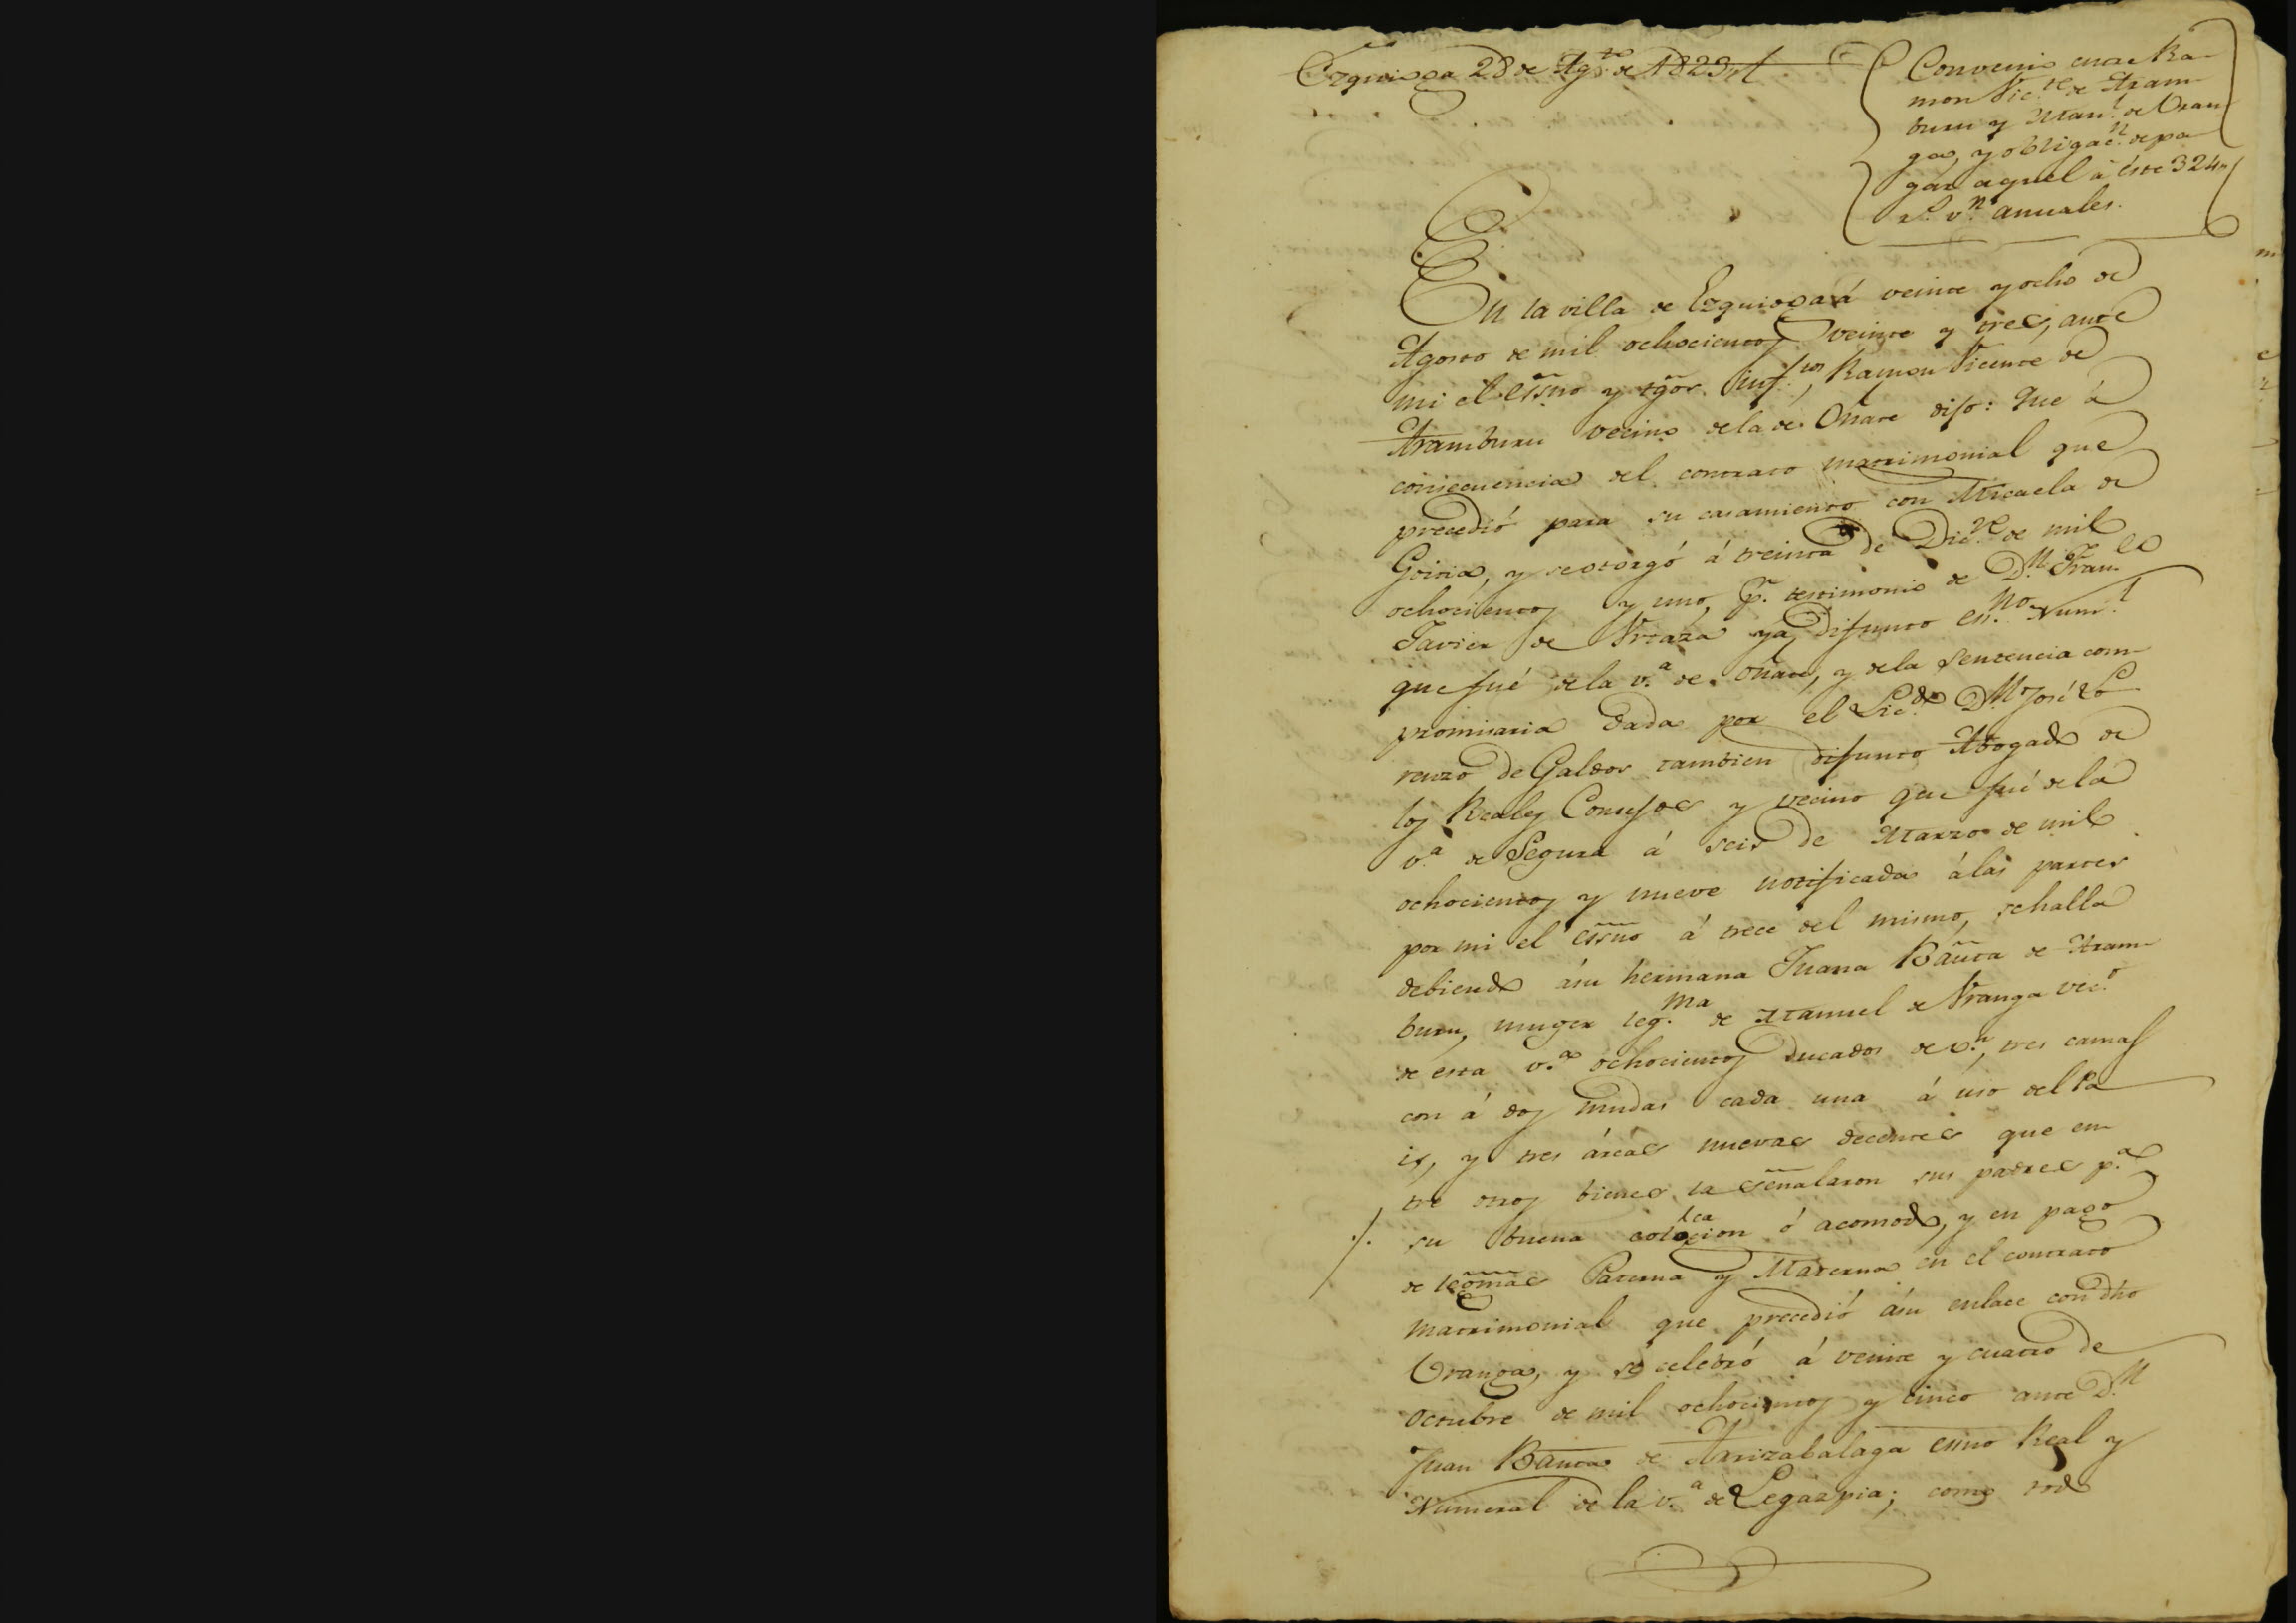 Ezquioga 28 de Ag.to de 1823,,
Convenio entre Ra-
mon Vic.te de Aram-
buru y Man.l de Uran-
ga, y obligac.n de pa
gar aquel á éste 324,,
r.s v.n anuales.
En la villa de Ezquioga á veinte y ocho de
Agosto de mil ochocientos veinte y tres, ante
mi el essno y tgõs. infros, Ramon Vicente de
Aramburu vecino de la de Oñate dijo: Que á
consecuencia del contrato matrimonial que
precedió para su casamiento con Micaela de
Goitia, y se otorgó á treinta de Dic.re de mil
ochocientos y uno, p.r testimonio de D.n Fran.co
Javier de Urtaza yá difunto es.no Num.l
que fué de la v.a de Oñate, y de la sentencia com-
promisaria dada por el Lic.do D.n José Lo
renzo de Galdos tambien difunto Abogado de
los Reales Consejos y vecino que fué de la
v.a de Segura á seis de Marzo de mil
ochocientos y nueve notificada á las partes
por mi el essno á trece del mismo, se halla
debiendo ásu hermana Juana Bauta de Aram-
buru, muger leg.ma de Manuel de Uranga vec.o
de esta v.a ochocientos ducados de v.n, tres camas
con á dos mudas cada una á uso del Pa
is, y tres árcas nuevas decentes que en-
tre otros bienes la señalaron sus padres p.a
./. su buena colocacion ó acomodo, y en pago
de legmas Paterna y Materna en el contrato
matrimonial que precedió ásu enlace con dho
Uranga, y se celebró á veinte y cuatro de
Octubre de mil ochocientos y cinco ante D.n
Juan Bauta de Arrizabalaga essno Real y
Numeral de la v.a de Legazpia; como todo